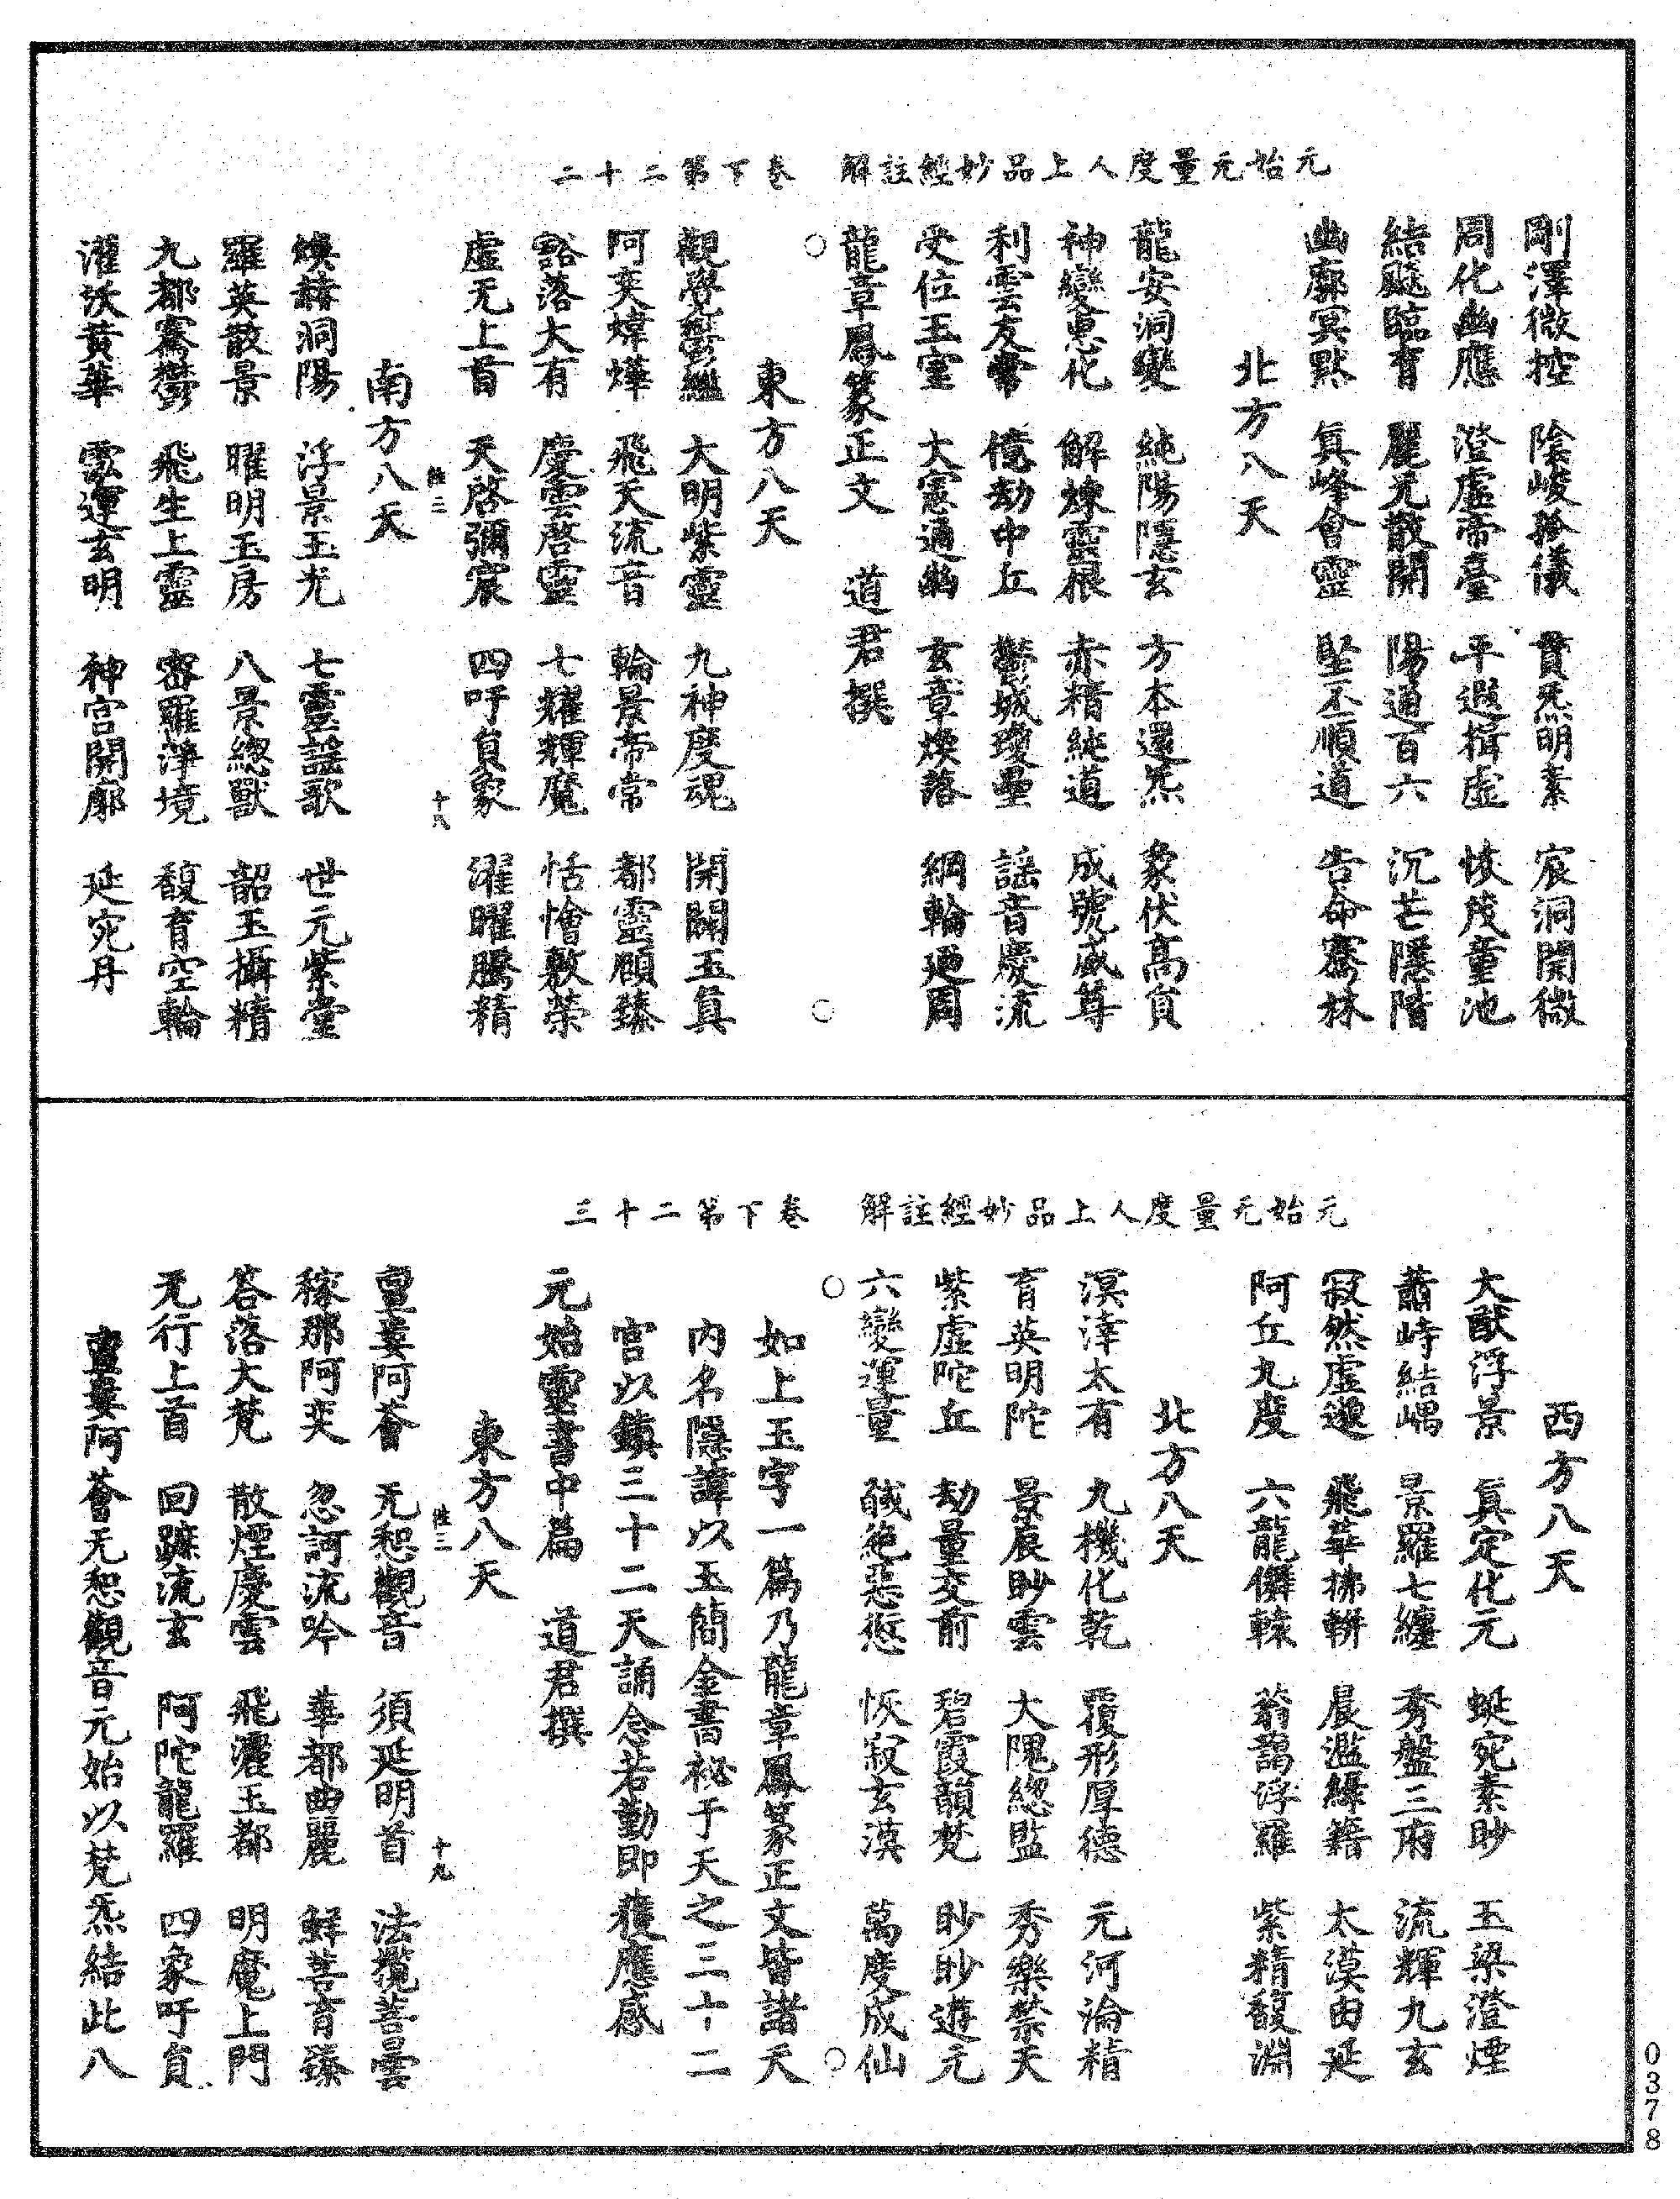 元始无量度人上品妙經註解　卷下第二十二
剛澤微控　陰崚矜儀　貫炁明素　宸洞開微
周化幽應　澄虛帝臺　平遐揖虛　恢茂童池
結飈臨育　麗无散開　陽通百六　沉芒隱階
幽廓冥默　真峰會靈　堅丕順道　告命騫林
北方八天
龍安洞變　純陽隱玄　方本還炁　象伏高貟
神變惠化　解煉靈根　赤精純道　成號威尊
利雲友常　億劫中丘　鬱城瓊壘　謠音慶流
受位玉室　大憲通幽　玄章煥落　綱輪廻周
龍章鳳篆正文　道君撰
東方八天
觀覺鬱繼　大明紫靈　九神度魂　開闢玉真
阿奕煒燁　飛天流音　輪景帝常　都靈願臻
豁落大有　慶雲啓靈　七耀輝魔　恬憺敷榮
虛无上首　天啓彌宸　四吁貟象　濯曜騰精
十八
南方八天
煥赫洞陽　浮景玉光　七靈謠歌　世元紫堂
羅英散景　曜明玉房　八景總獸　韶玉攝精
九都騫鬱　飛生上靈　密羅淨境　馥育空輪
濯沃黄華　雲運玄明　神宮開廓　延宛丹
元始无量度人上品妙經註解　卷下第二十三
西方八天
大猷浮景　真定化元　蜒宛素眇　玉梁澄煙
蕭峙結嵎　景羅七纏　秀盤三府　流輝九玄
寂然虛邈　飛華拂輧　晨濫緯籍　太漠由延
阿丘九度　六龍儛轅　蓊藹浮羅　紫精馥淵
北方八天
溟涬太有　九機化乾　覆形厚德　元河淪精
育英明陀　景辰眇雲　大隗總監　秀樂禁天
紫虛陀丘　劫量交前　碧霞韻梵　眇眇遊元
六變運量　馘絶惡愆　恢寂玄漠　萬度成仙
如上玉字一篇乃龍章鳳篆正文皆諸天
内名隱諱以玉簡金書祕于天之三十二
宫以鎮三十二天誦念若勤即獲應感
元始靈書中篇　道君撰
東方八天
十九
亶婁阿薈　无惒觀音　須延明首　法攬菩曇
稼那阿奕　忽訶流吟　華都曲麗　鮮菩育臻
答落大梵　散煙慶雲　飛灑玉都　明魔上門
无行上首　回蹠流玄　阿陀龍羅　四象吁貟
亶婁阿薈无惒觀音元始以梵炁結此八
0378